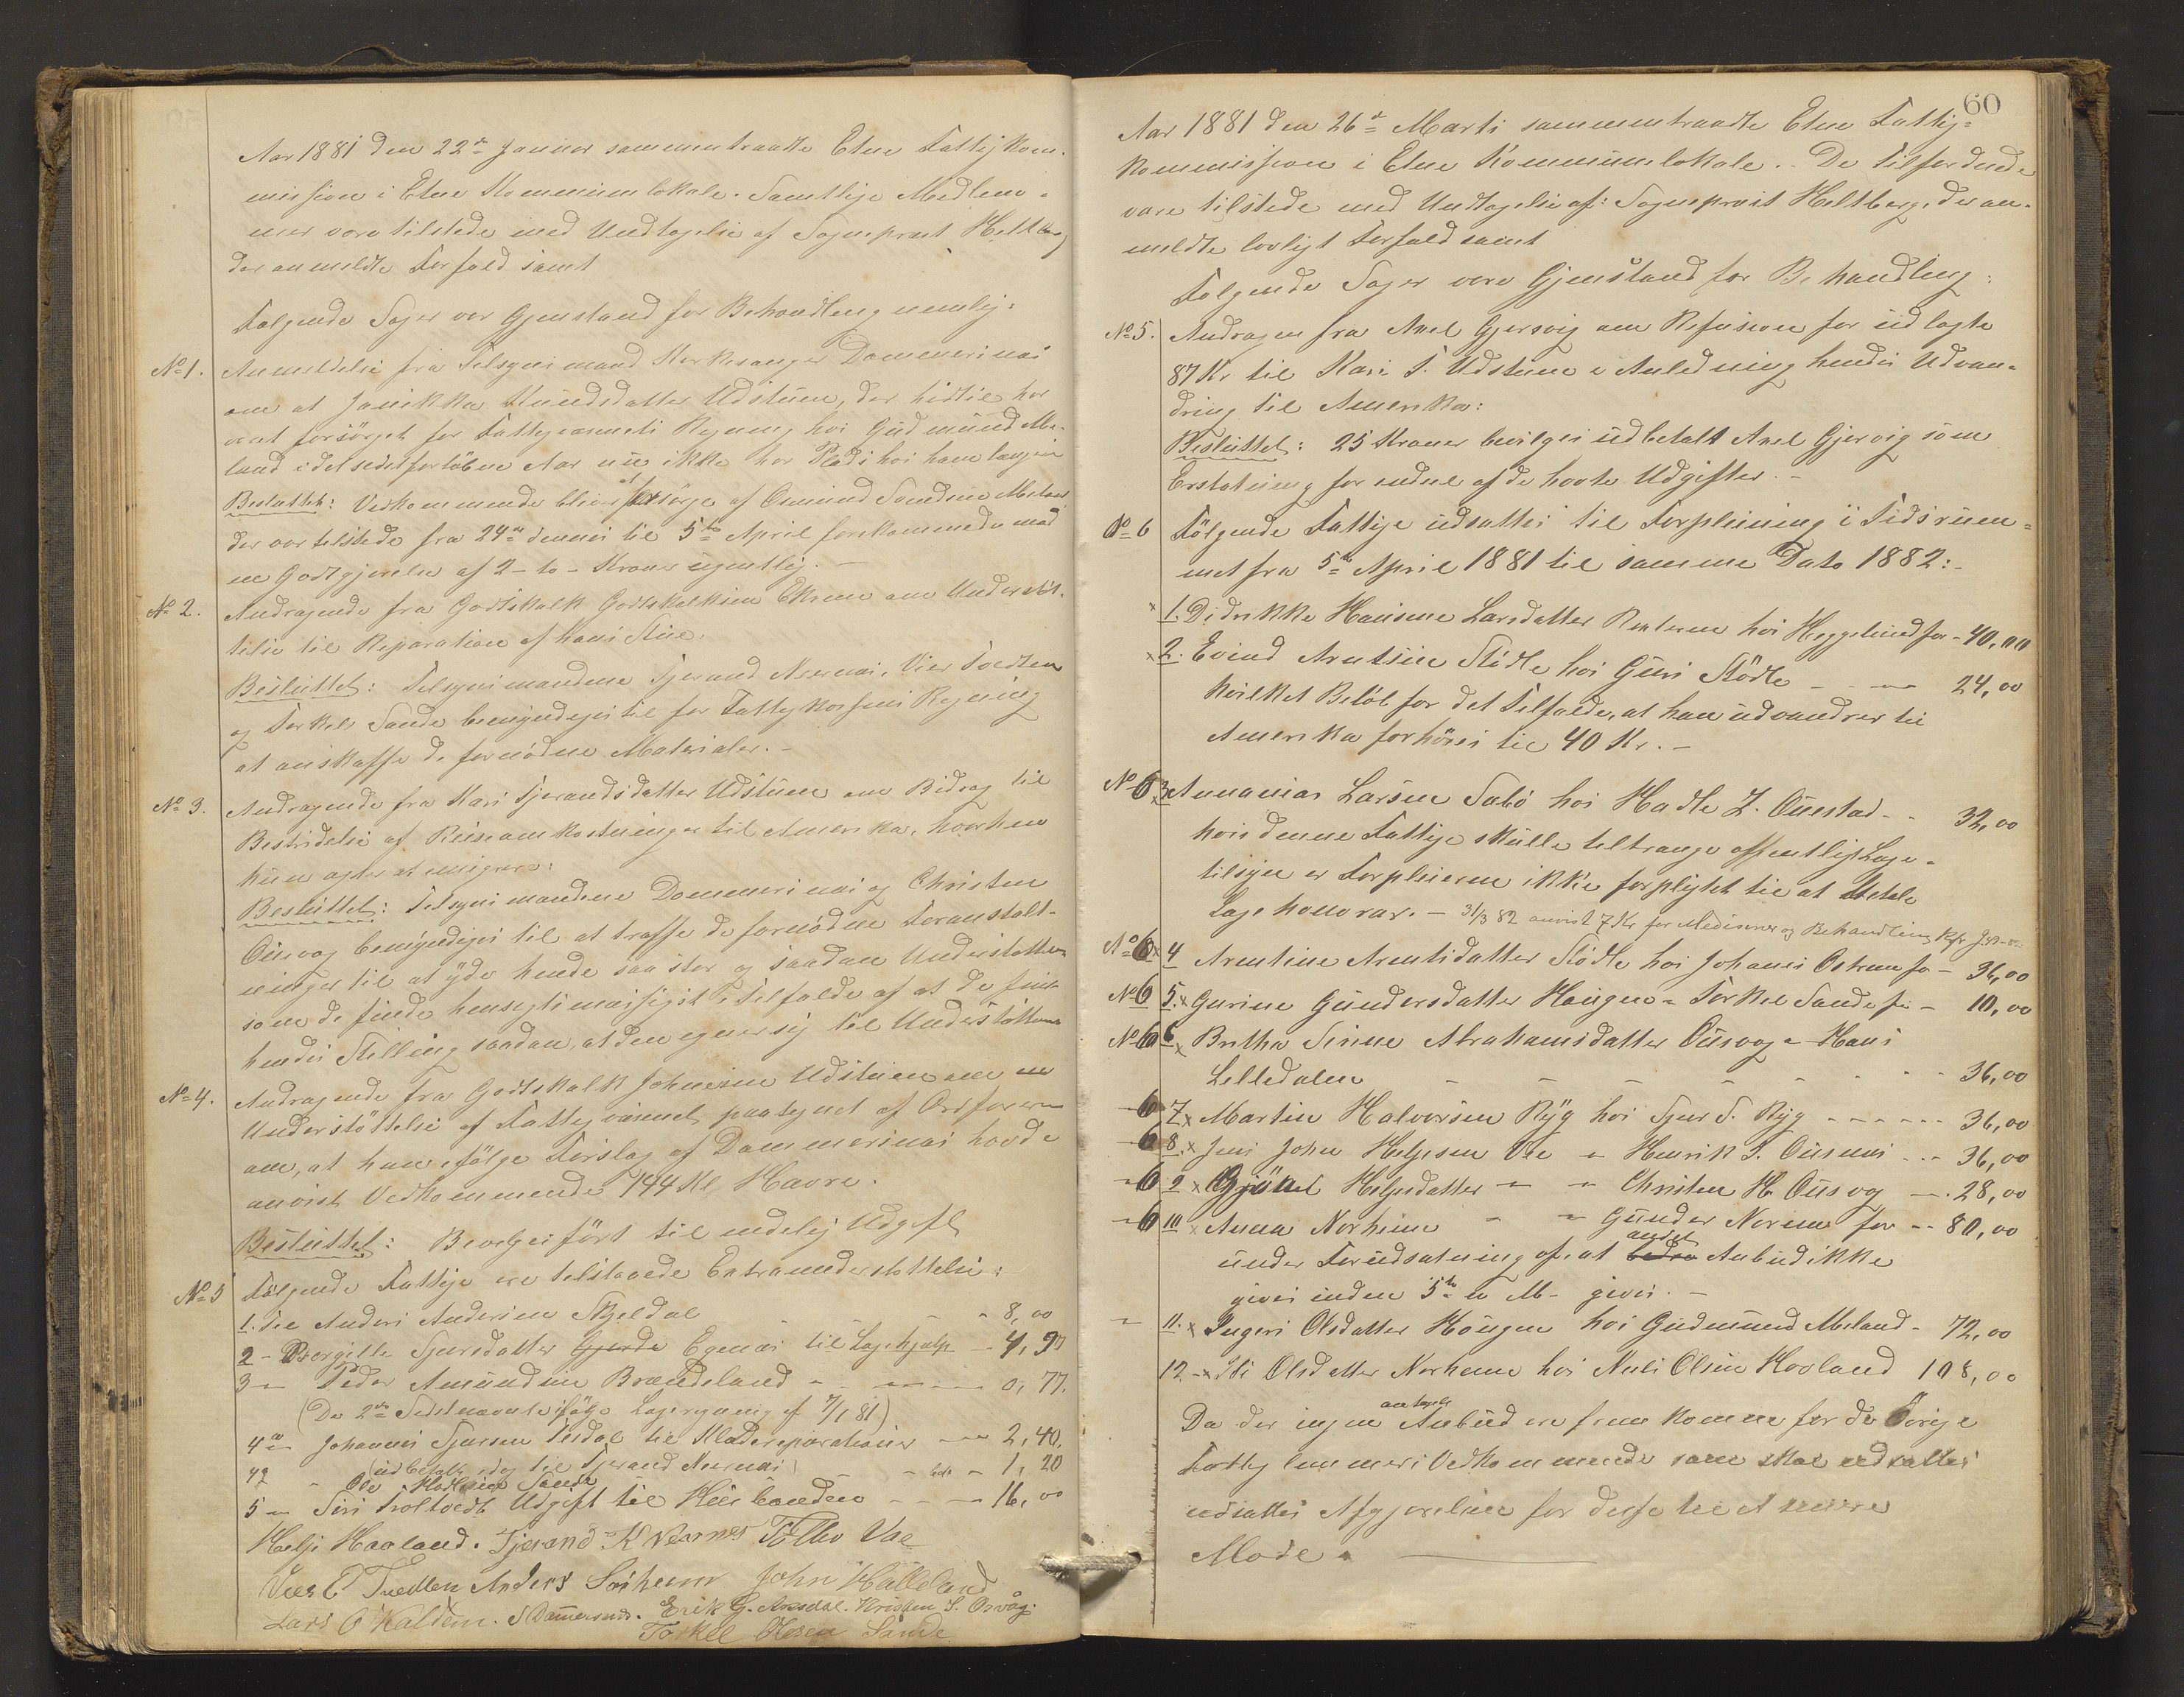 Aar 1881 den 22de Januar sammentraadte Etne Fattigkom-
mission i Etne Kommunelokale. Samtlige Medlem-
mer vare tilstede med Undtagelse af Sogneprest Heltberg
der anmeldte Forfald samt
Følgende Sager var Gjenstand for Behandling nemlig:
No 1. Anmeldelse fra Tilsynsmand Dommersnæs
om at Jannikka Knudsdatter Udstuen, der hidtil har
været forsørget for Fattigvæsenets Regning hos Gudmund Me-
land i det sidstforløbne Aar nu ikke har Plads hos ham længer
Besluttet: Vedkommende bliver at forsørge af Omund Svendsen Meland
der var tilstede fra 24de dennes til 5te April førstkommende mod
en Godtgjørelse af 2 - to - Kroner ugentlig. -
No 2. Andragende fra Godtskalk Godtskalksen Ekren om Understøt-
telse til Reparation af hans Stue.
Besluttet: Tilsynsmændene Tjerand Nernæs, Vier Tvedten
og Torkel Sande bemyndiges til for Fattigkassens Regning
at anskaffe de fornødne Materialer. -
No 3. Andragende fra Kari Tjerandsdatter Udstuen om Bidrag til
Bestridelse af Reiseomkostninger til Amerika, hvorhen
hun agter at emigrere:
Besluttet: Tilsynsmændene Dommersnæs og Christen
Øusvog bemyndiges til at træffe de fornødne Foranstalt-
ninger til at yde hende saa stor og saadan Understøttelse
som de finde hensigtsmæssigst i Tilfælde af at de finde
hendes Stilling saadan, at den egner sig til Understøttelse
No 4. Andragende fra Godtskalk Johnsen Udstuen om en
Understøttelse af Fattigvæsenet paategnet af Ordføreren
om, at han ifølge Forslag af Dommersnæs havde
anvist Vedkommende 144 Kl Havre.
Besluttet: Bevilges ført til endelig Udgift
No 5 Følgende Fattige ere tilstaaede Extraunderstøttelse:
1. Til Anders Andersen Skjeldal - 8,00
2 - Børgille Sjursdatter Gjerde Egenæs til Lægehjælp - 4,90
3 - Peder Amundsen Brændeland - 0,77.
(De 2de Sidstnævnte ifølge Lægeregning af 7/1 81)
4 - Johannes Sjursen Tesdal til Klædereparationer - 2,40.
42 - (udbetalt idag til Tjerand Nernæs)
Ole Hadlesen Sande - 1,20
5 - Siri Troltvedt Udgift til Huusbonden - 16,00
Helje Haaland. Tjerand K Nearnes T. Oho Vae
Vier E Tvedten Anders Sørheim John Hålleland
Lars O Kaldem. S Dommersnæs. Erik G. Arsdal. Kristen S. Osvåg.
Torkel Olesen Sande
60
Aar 1881 den 26de Marts sammentraadte Etne Fattig-
kommission i Etne Kommunelokale. De Tilforordnede
vare tilstede med Undtagelse af: Sogneprest Heltberg, der an-
meldte lovligt Forfald samt
Følgende Sager vare Gjenstand for Behandling:
No 5. Andragen fra Axel Gjersvig om Refusion for udlagte
87 Kr til Kari T. Udstuen i Anledning hendes Udvan-
dring til Amerika:
Besluttet: 25 Kroner bevilges udbetalt Axel Gjersvig som
Erstatning for endel af de havte Udgifter. -
No 6 Følgende Fattige udsattes til Forpleining i Tidsrum-
met fra 5te April 1881 til samme Dato 1882:-
x 1. Didrikke Hansine Larsdatter hos Heggelund for - 40,00
x 2. Eivind Arntsen Stødle hos Guri Stødle - - - 24,00
hvilket Beløb for det Tilfælde, at han udvandrer til
Amerika forhøies til 40 Kr. -
No 6 3x Annanias Larsen Sæbø hos Hadle Z. Øunstad - - 32,00
hvis denne Fattige skulle tiltrænge offentlig Læge-
tilsyn er Forpleieren ikke forpligtet til at betale
Lægehonorar. - 31/3 82 anvist 7 Kr for Medisiner og Behandling
No 6 x 4 Arntine Arntsdatter Stødle hos Johannes Østrem for - 36,00
No 6 5. x Gurine Gundersdatter Haugen - Torkel Sande for - 10,00
No 6 6 x Brithe Serine Abrahamsdatter Øusvog - Hans
Lilledalen - - - - - - 36,00
- 6 7 x Martin Halvorsen Ryg hos Sjur S. Ryg - - - - - 36,00
- 6 8. x Jens John Helgesen Vae - Henrik S. Øusnæs - - 36,00
- 6 9 x Gjøkel Helgesdatter - - Christen H. Øusvog - 28,00
- 6 10 x Anna Norheim - - Gunder Norem for - 80,00
under Forudsætning af, at bedre andet Anbud ikke
gives inden 5te n M - gives. -
- 11. x Ingeri Olsdatter Haugen hos Gudmund Meland - 72,00
12 - x Olsdatter Norheim hos Niels Olsen Haaland 108,00
Da der ingen antagelige Anbud ere fremkomne for de Øvrige
Fattiglemmers Vedkommende som skal udsættes
udsattes Afgjørelsen for disse til et senere
Møde. -